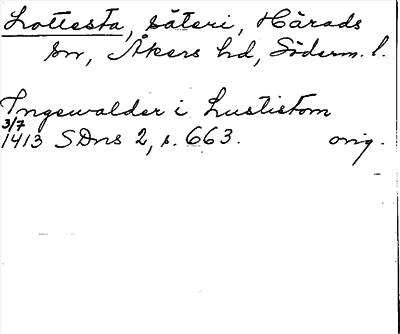 Lottesta, säteri, Härads
sn, Åkers hd, Söderm. l.
Ingewalder i Lustistom
3/7
1413 SDns 2, s. 663. orig.